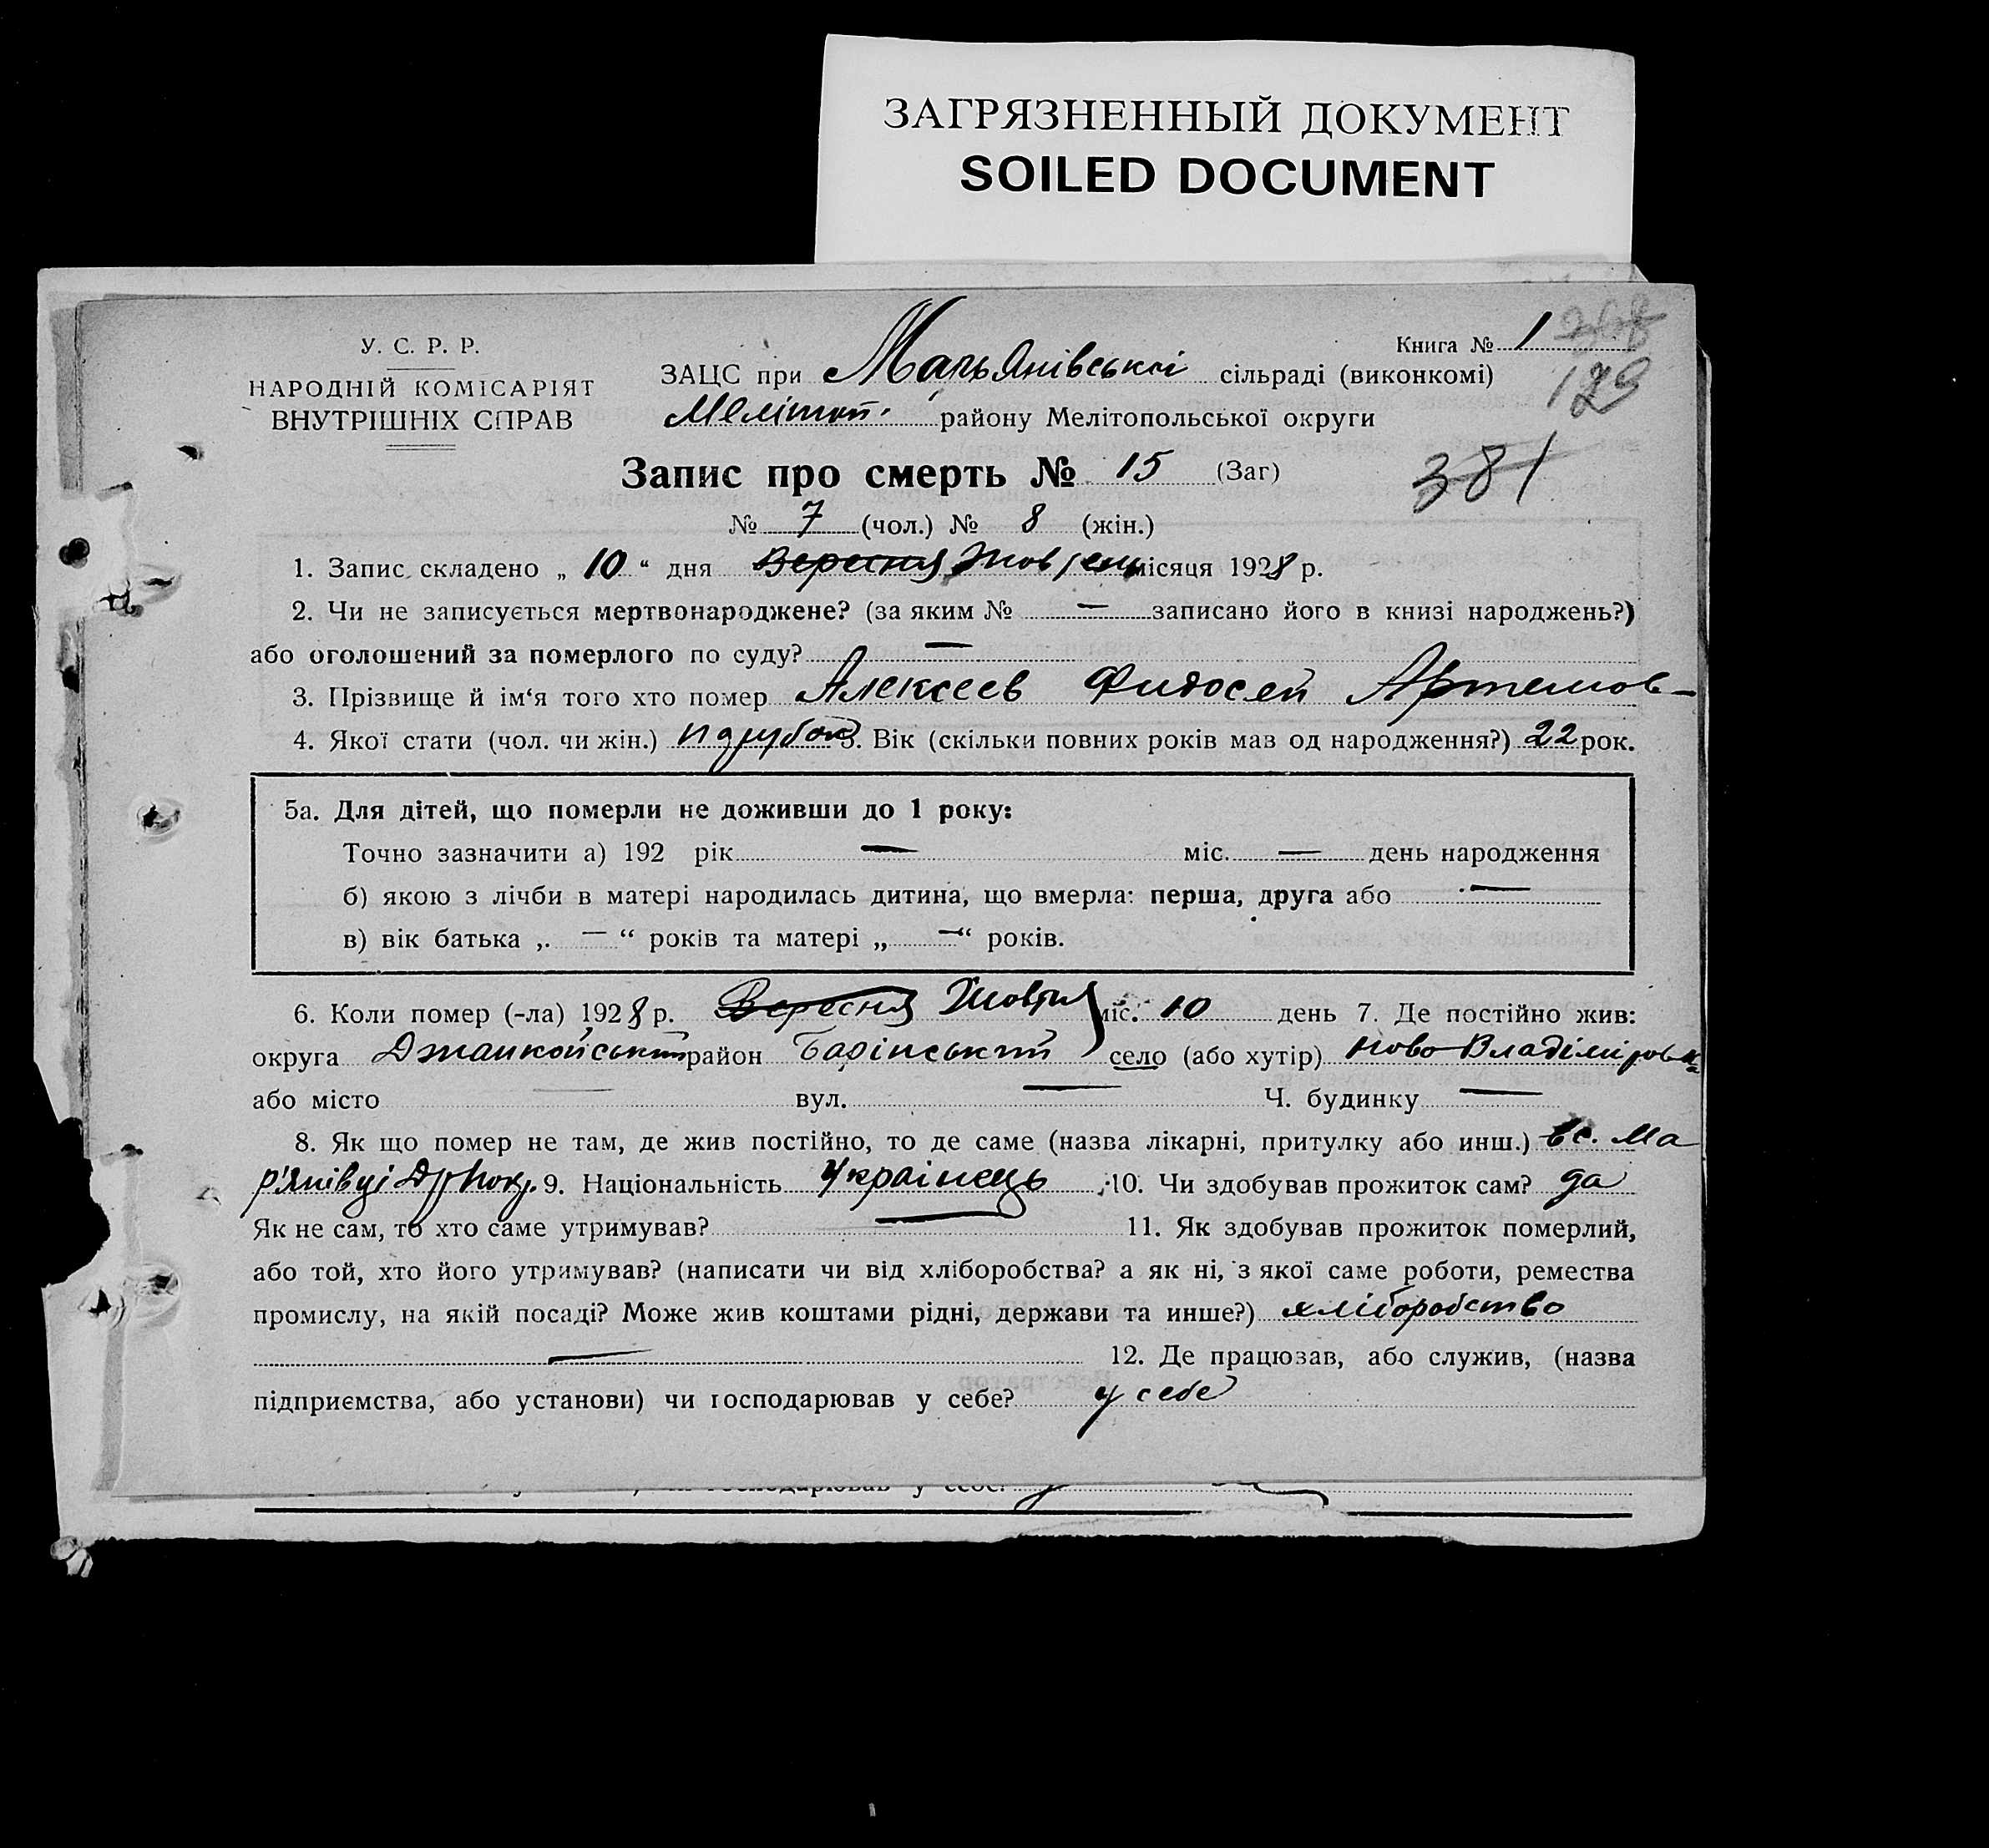 ЗАГРЯЗНЕННЫЙ ДОКУМЕНТ
SOILED DOCUMENT
У. С. Р. Р.
НАРОДНІЙ КОМІСАРІЯТ
ВНУТРІШНІХ СПРАВ
Книга № 1
129
ЗАЦС при Мар'янівській сільраді (виконкомі)
Мелітоп. району Мелітопольської округи
381
Запис про смерть № 15 (Заг)
№ 7 (чол.) № 8 (жін.)
1. Запис складено „ 10 “ дня Вересня Жовтень місяця 1928 р.
2. Чи не записується мертвонароджене? (за яким № — записано його в книзі народжень?)
або оголошений за померлого по суду? —
3. Прізвище й ім‘я того хто помер Алексеев Фидосей Артемов-
4. Якої стати (чол. чи жін.) 5. Вік (скільки повних років мав од народження?) 22 рок.
5а. Для дітей, що померли не доживши до 1 року:
Точно зазначити а) 192 рік — міс. — день народження
б) якою з лічби в матері народилась дитина, що вмерла: перша, друга або —
в) вік батька „ — “ років та матері „ — “ років.
6. Коли помер (-ла) 1928 р. Вересня Жовтня міс. 10 день 7. Де постійно жив:
округа Джанкойський район село (або хутір) Ново-Владіміровка
або місто — вул. — Ч. будинку —
8. Як що помер не там, де жив постійно, то де саме (назва лікарні, притулку або инш.) в с. Ма
р'янівці 9. Національність Українець 10. Чи здобував прожиток сам? да
Як не сам, то хто саме утримував? — 11. Як здобував прожиток померлий,
або той, хто його утримував? (написати чи від хліборобства? а як ні, з якої саме роботи, ремества
промислу, на якій посаді? Може жив коштами рідні, держави та инше?) хліборобство
— 12. Де працював, або служив, (назва
підприємства, або установи) чи господарював у себе? у себе